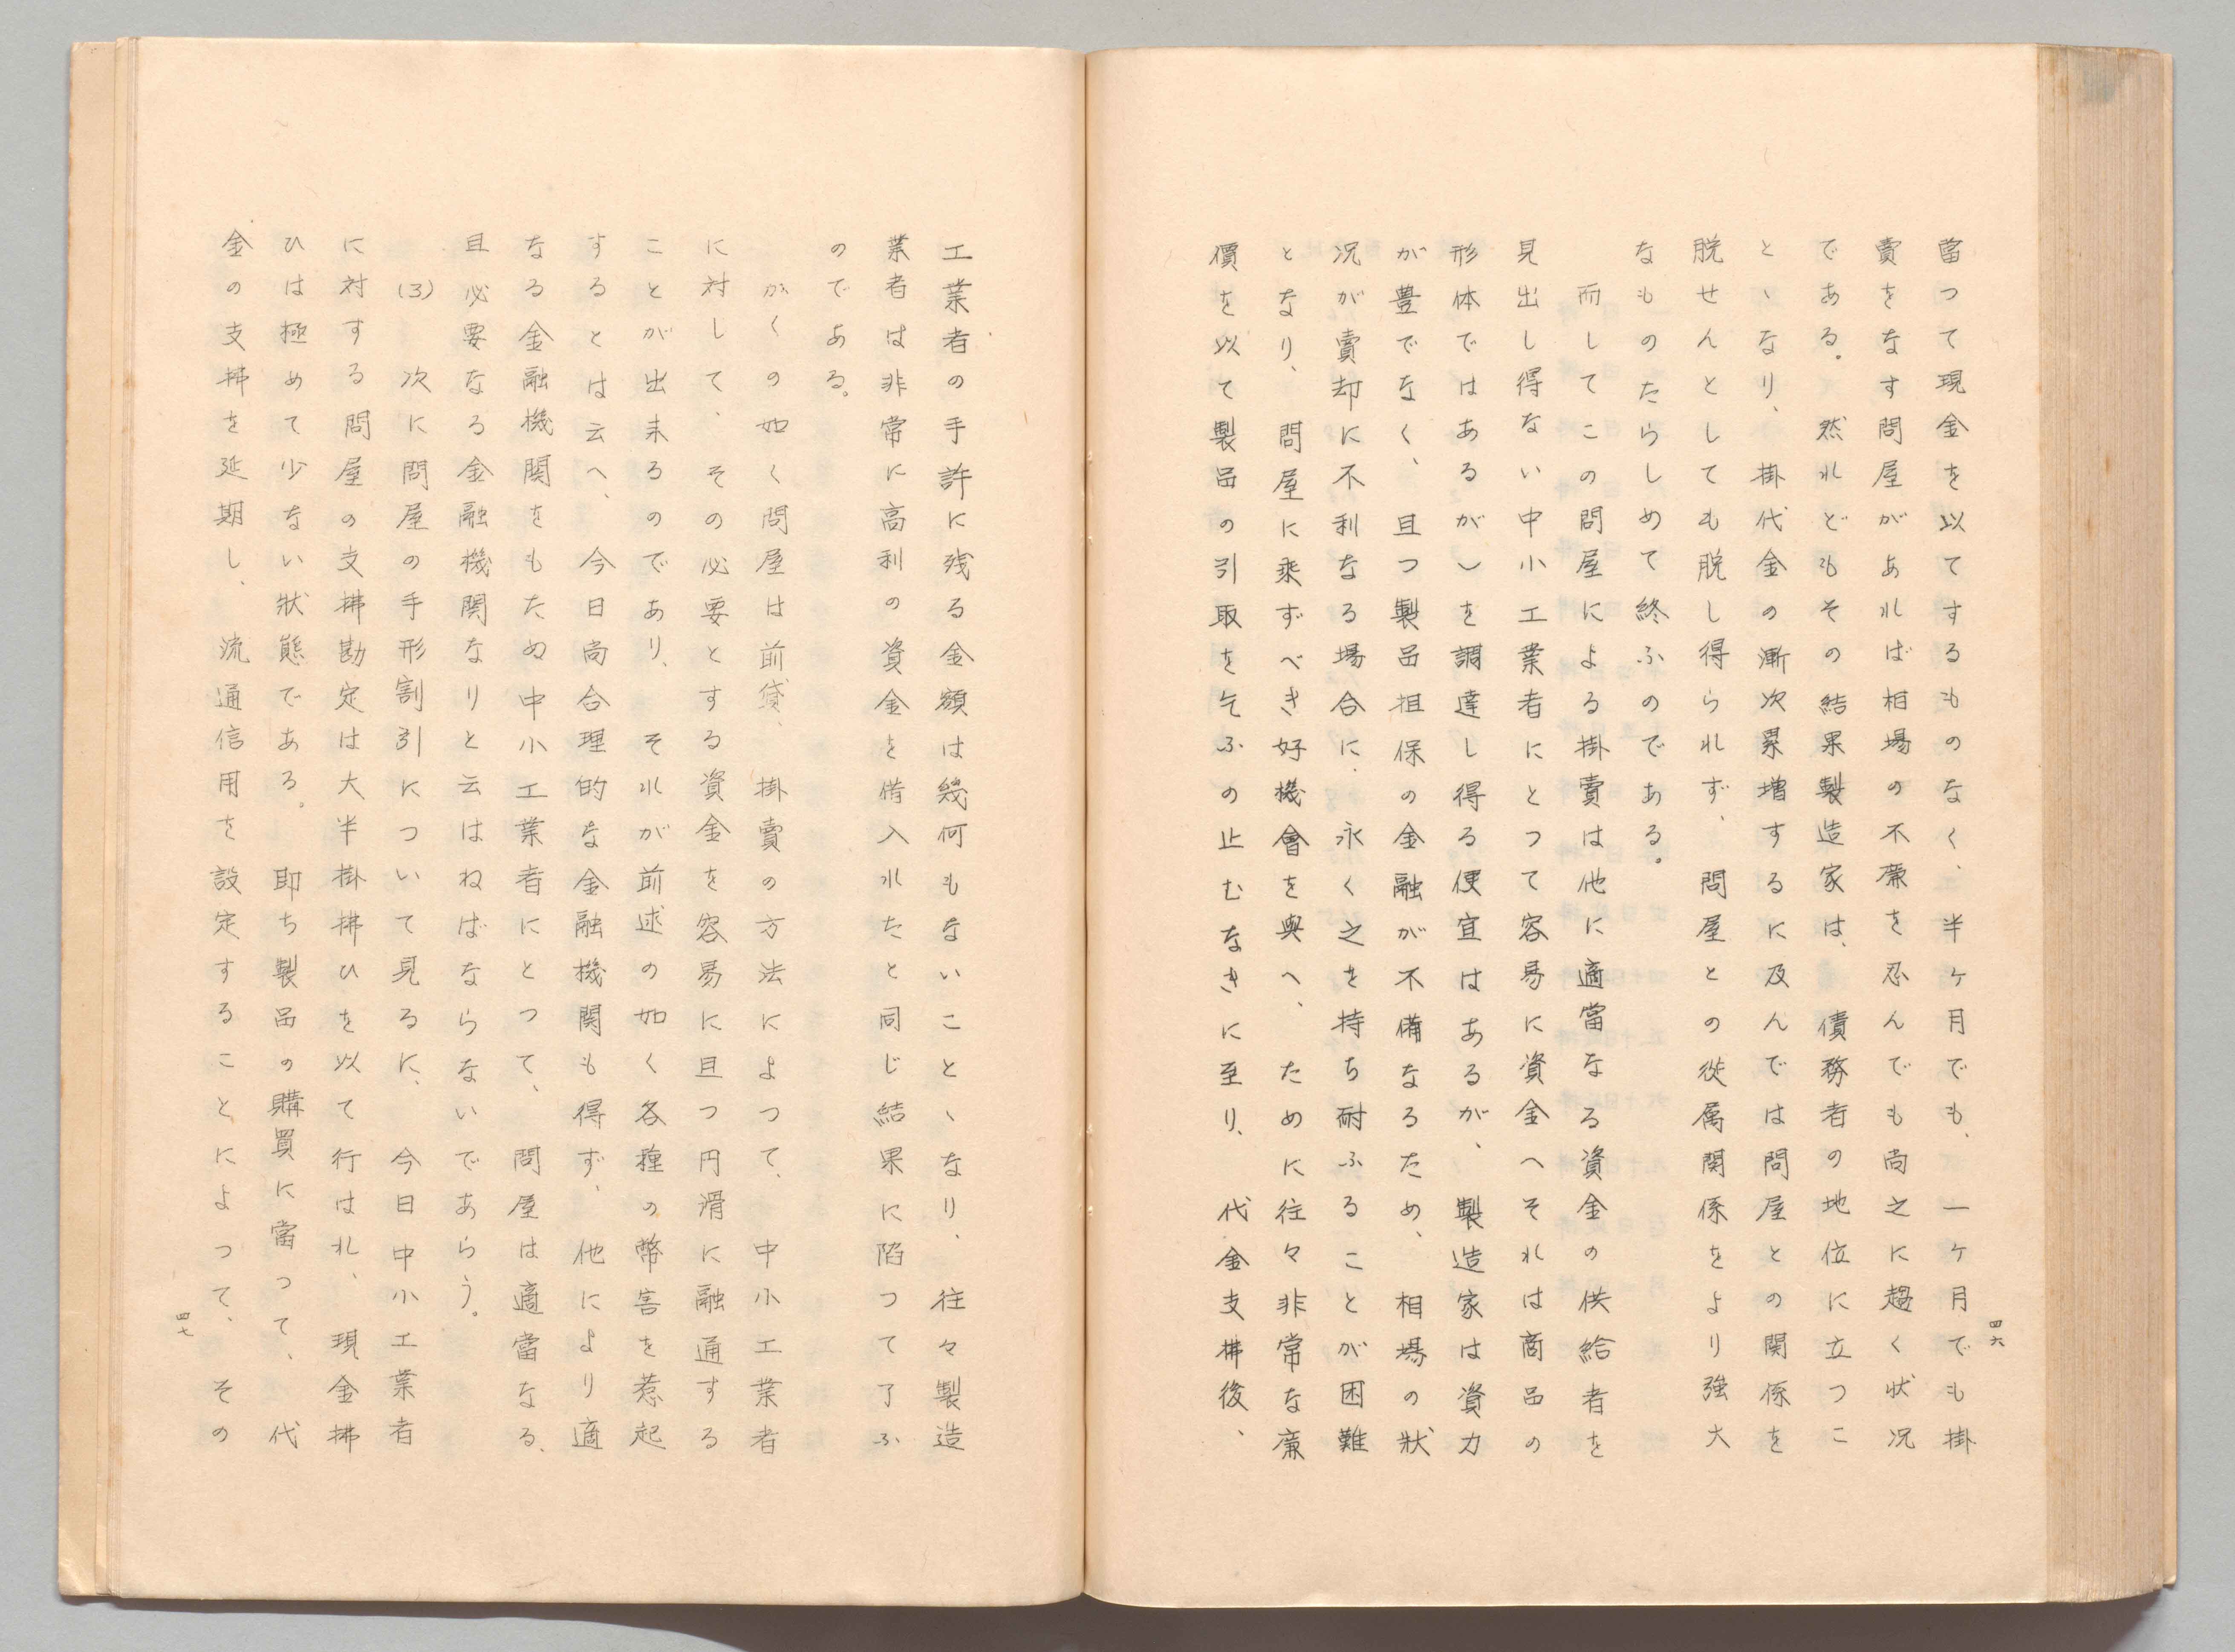 當つて現金を以てするものなく、半ヶ月でも、一ヶ月でも掛
賣をなす問屋があれば相場の不廉を忍んでも尚之に趨く状况
である。然れどもその結果製造家は、債務者の地位に立つこ
とゝなり、掛代金の漸次累増するに及んでは問屋との関係を
脱せんとしても脱し得られず、問屋との從属関係をより強大
なものたらしめて終ふのである。
而してこの問屋による掛賣は他に適當なる資金の供給者を
見出し得ない中小工業者にとつて容易に資金へそれは商品の
形体ではあるが)を調達し得る便宜はあるが、製造家は資力
が豊でなく、且つ製品担保の金融が不備なるため、相場の狀
況が賣却に不利なる場合に、永く之を持ち耐ふることが困難
となり、問屋に乘ずべき好機會を與へ、ために往々非常な廉
價を以て製品の引取を乞ふの止むなきに至り、代金支拂後、
四六
工業者の手許に残る金額は幾何もないことゝなり、往々製造
業者は非常に高利の資金を借入れたと同じ結果に陷つて了ふ
のである。
かくの如く問屋は前貸、掛賣の方法によつて、中小工業者
に対して、その必要とする資金を容易に且つ円滑に融通する
ことが出来るのであり、それが前述の如く各種の幣害を惹起
するとは云へ、今日尚合理的な金融機関も得ず、他により適
なる金融機関をもたぬ中小工業者にとつて、問屋は適當なる、
且必要なる金融機関なりと云はねばならないであらう。
(3) 次に問屋の手形割引について見るに、今日中小工業者
に対する問屋の支拂勘定は大半掛拂ひを以て行はれ、現金拂
ひは極めて少ない狀態である。卽ち製品の購買に當つて、代
金の支拂を延期し、流通信用を設定することによつて、その
四七